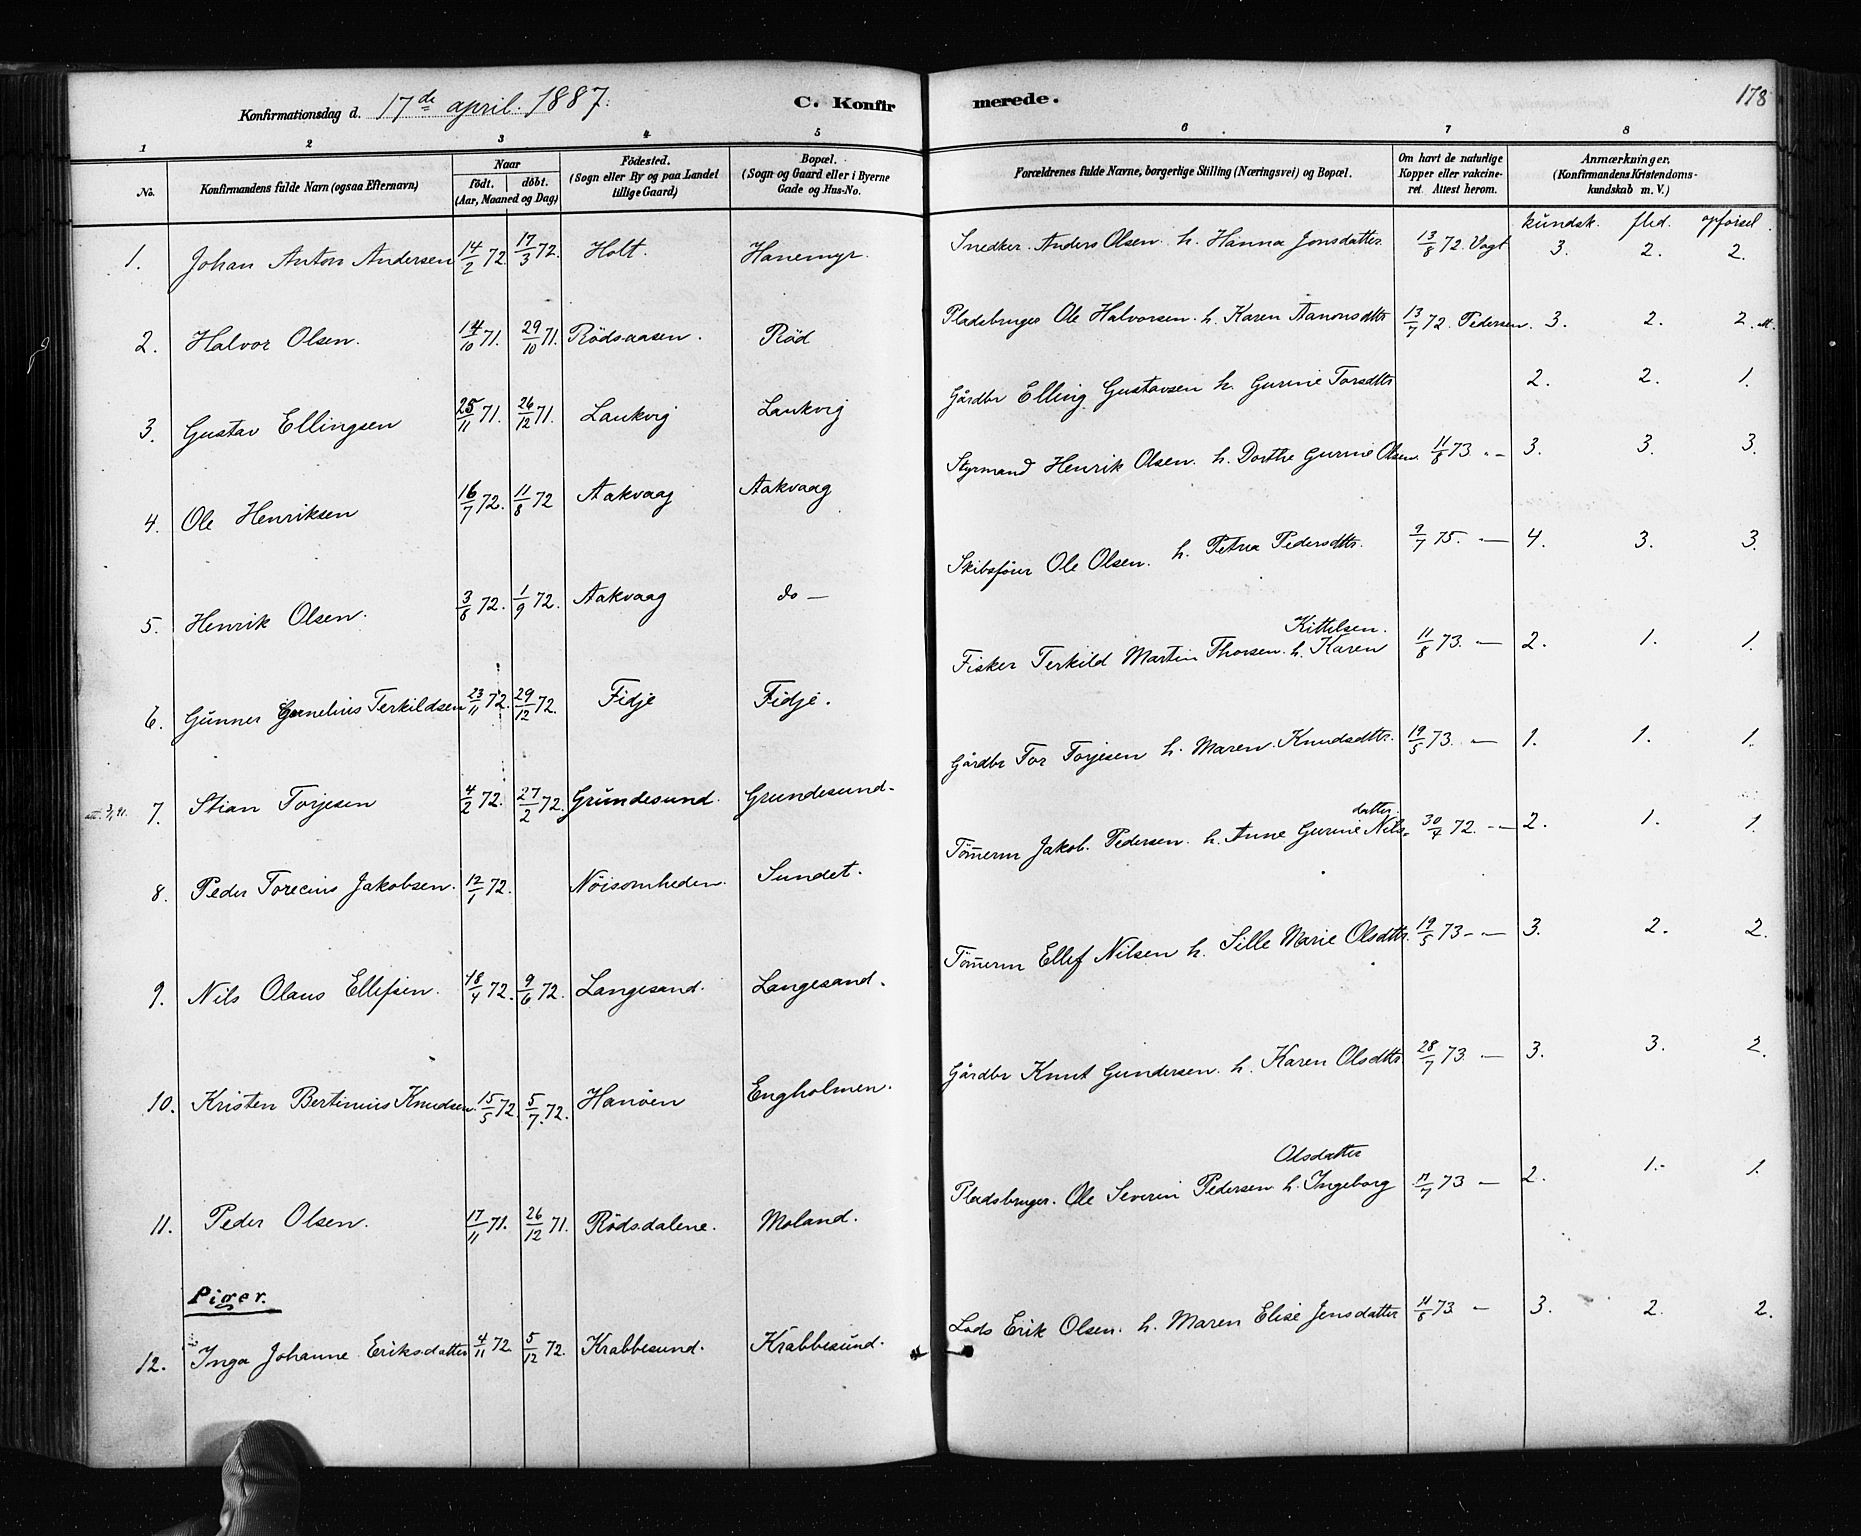 Konfirmationsdag d. 17de april. 1887.
C. Konfirmerede.
178
1 2 3 4 5 6 7 8
No.
Konfirmandens fulde Navn (ogsaa Efternavn)
Naar
födt. döbt.
(Aar, Maaned og Dag)
Födested.
(Sogn eller By og paa Landet
tillige Gaard)
Bopæl.
(Sogn og Gaard eller i Byerne
Gade og Hus-No.
Forældrenes fulde Navne, borgerlige Stilling (Næringsvei) og Bopæl.
Om havt de naturlige
Kopper eller vakcine-
ret. Attest herom.
Anmærkninger,
(Konfirmandens Kristendoms-
kundskab m. V.)
kundsk. flid. opførsel.
1. Johan Anton Andersen 14/2 72. 17/3 72. Holt. Hanemyr. Snedker. Anders Olsen. h. Hanna Jonsdatter. 13/8 72. Vogt 3. 2. 2.
2. Halvor Olsen. 14/10 71. 29/10 71. Rödsaasen. Röd Pladsbruger Ole Halvorsen. h. Karen Aanonsdttr 13/7 72. Pedersen. 3. 2. 2.
3. Gustav Ellingsen 25/11 71. 26/12 71. Laukvig Laukvig Gårdbr Elling Gustavsen h. Gurine Torsdttr 2. 2. 1.
4. Ole Henriksen 16/7 72. 11/8 72 Aakvaag Aakvaag Styrmand Henrik Olsen. h. Dorthe Gurine Olsen. 11/8 73. „— 3. 3. 3.
5. Henrik Olsen. 3/8 72. 1/9 72. Aakvaag do — Skibsförer Ole Olsen. h. Petrea Pedersdttr. 9/7 75. — 4. 3. 3.
Kittelsen.
6. Gunner Cornelius Terkildsen 23/11 72. 29/12 72. Fidje Fidje. Fisker Terkild Martin Thorsen. h. Karen 11/8 73. — 2. 1. 1.
7. Stian Torjesen 4/2 72. 27/2 72. Grundesund. Grundesund. Gårdbr Tor Torjesen h. Maren Knudsdttr. 19/5 73. — 1. 1. 1.
datter.
8. Peder Torecius Jakobsen. 12/1 72. Nöisomheden. Sundet. Tömerm Jakob. Pedersen. h. Anne Gurine Nils- 30/7 72. — 2. 1. 1.
9. Nils Olaus Ellefsen. 18/4 72. 9/6 72. Langesand. Langesand. Tömerm Ellef Nilsen h. Sille Marie Olsdttr. 19/5 73 — 3. 2. 2.
10. Kristen Bertinius Knudsen. 15/5 72 5/7. 72. Hanöen Engholmen. Gårdbr Knut Gundersen. h. Karen Olsdttr 28/7 73. — 3. 3. 2.
Olsdatter
11. Peder Olsen. 17/11 71. 26/12 71. Rödsdalene. Moland. Pladsbruger. Ole Severin Pedersen h. Ingeborg 11/7 73 — 2. 1. 1.
Piger.
12. Inga Johanne Eriksdatter 4/11 72 5/12 72. Krabbesund. Krabbesund. Lods Erik Olsen. h. Maren Elise Jensdatter 11/8 73. — 3. 2. 2.